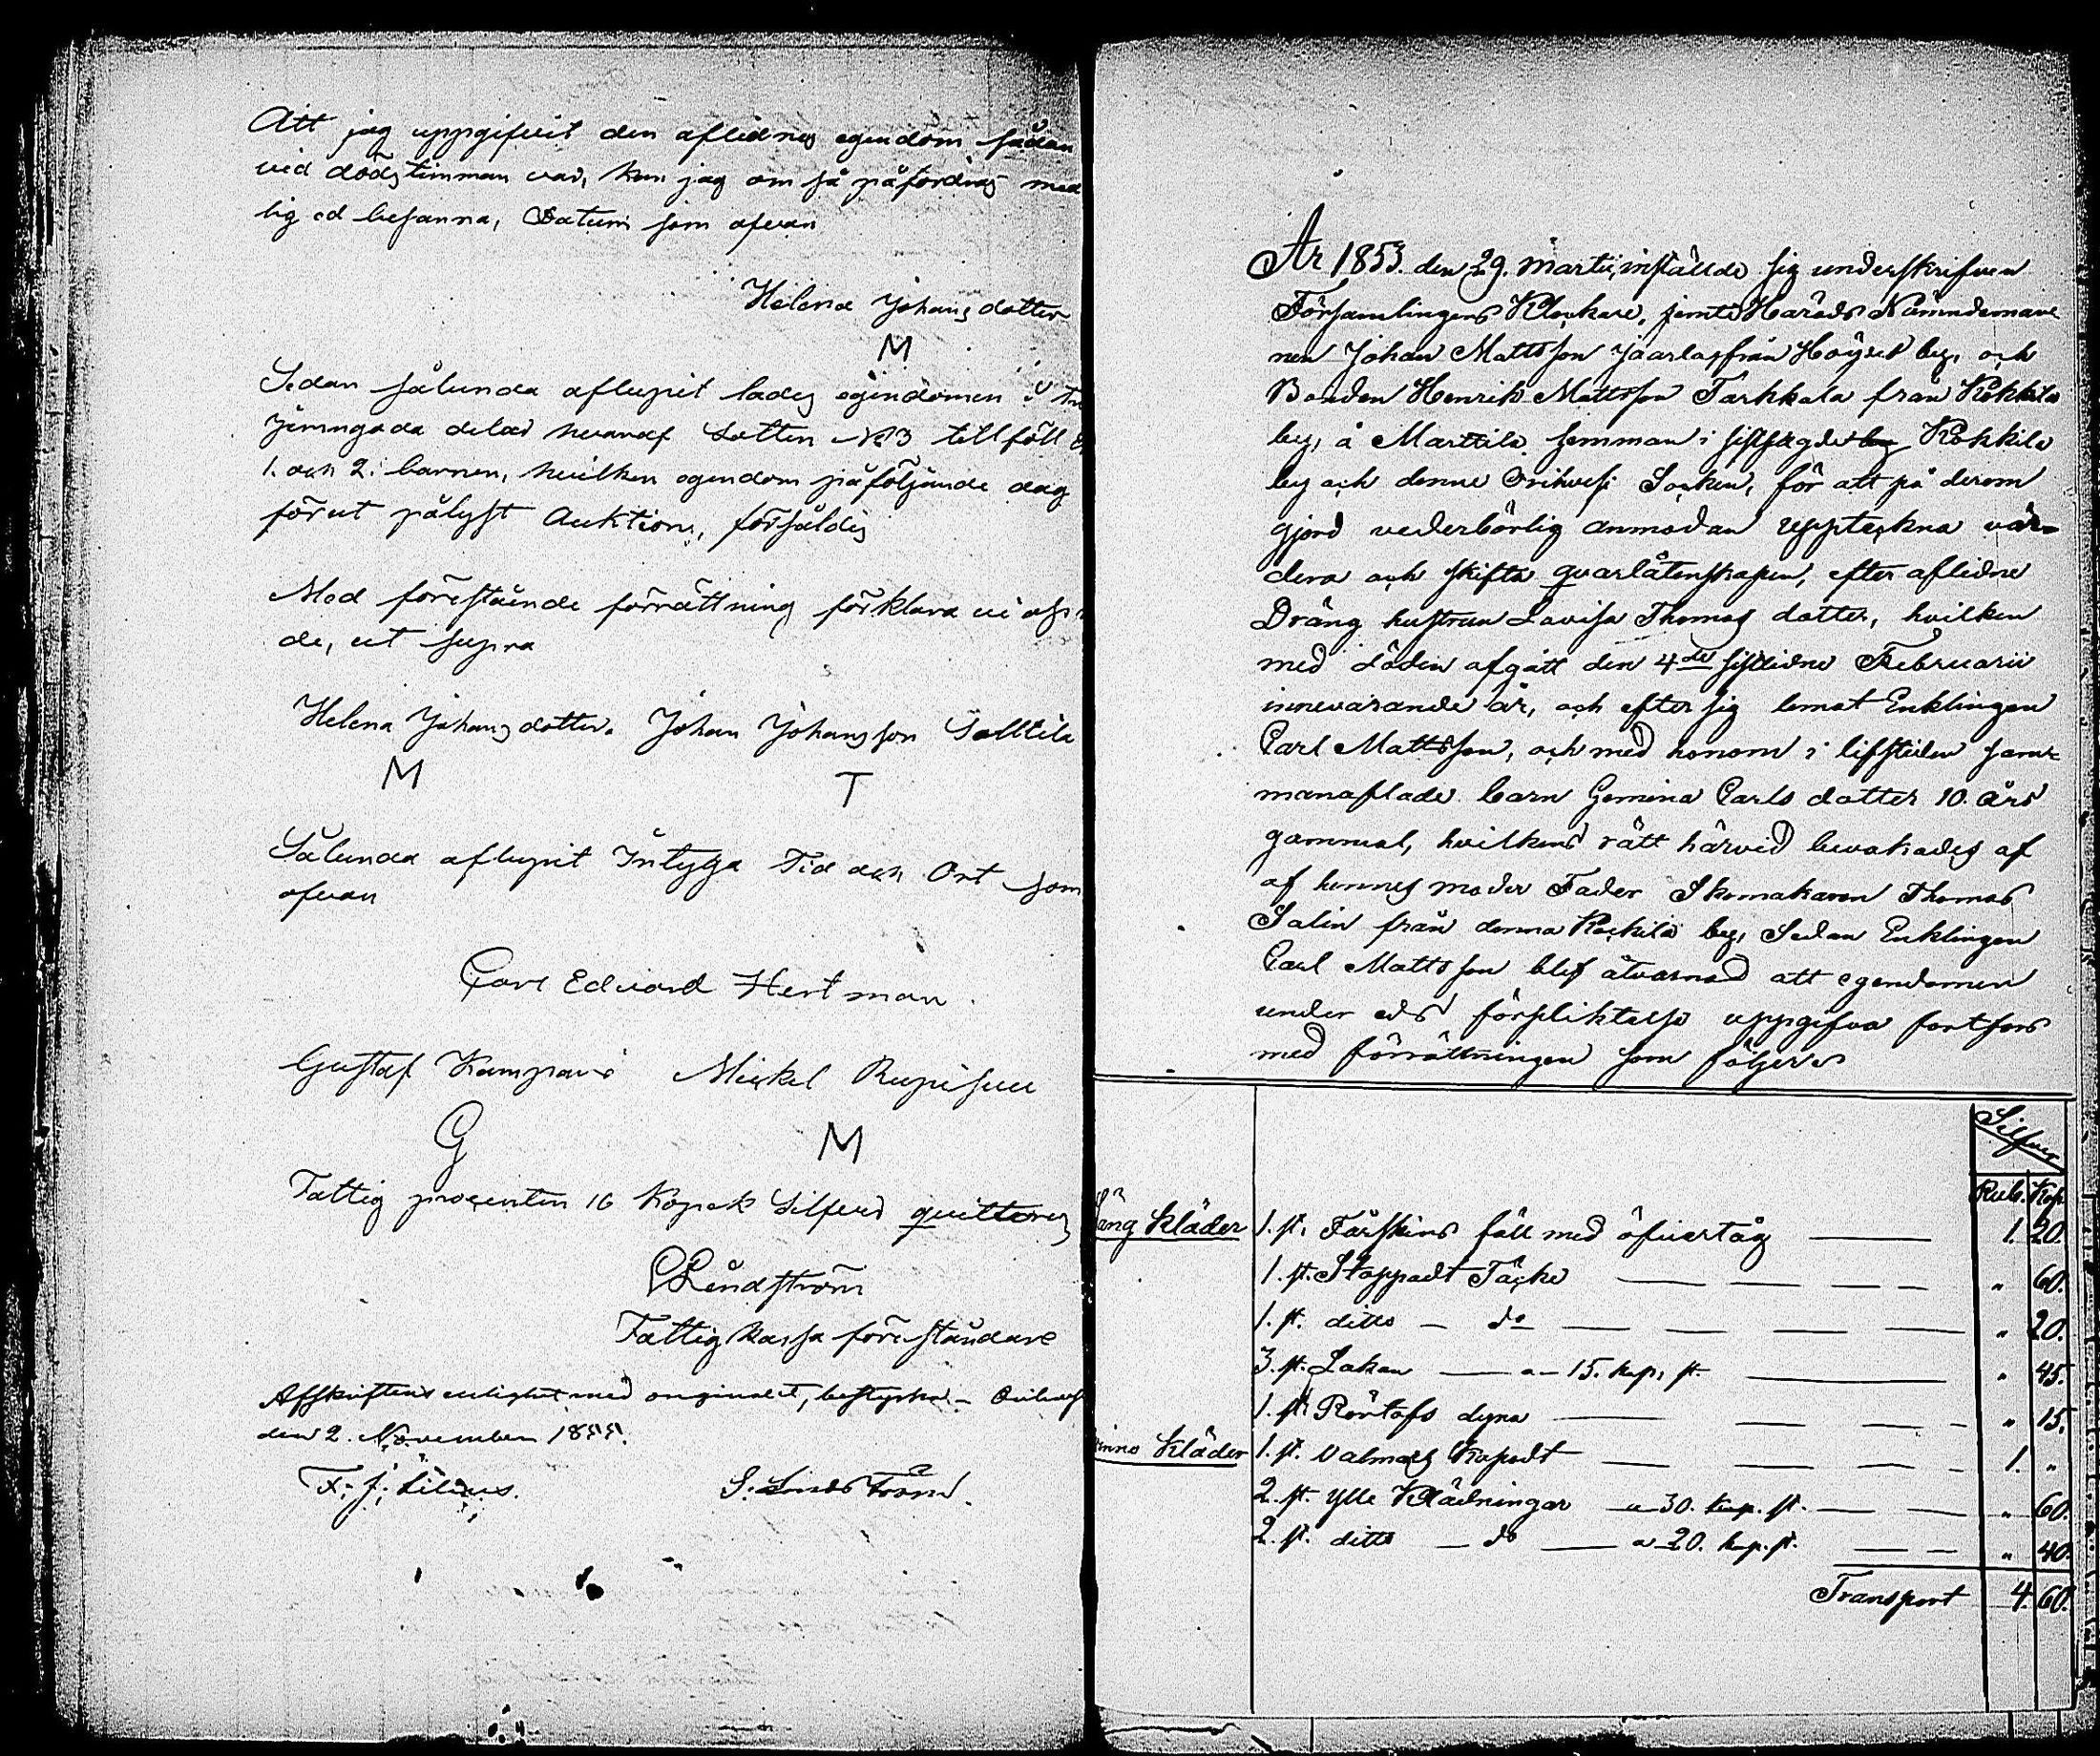 Att jag uppgifvit den aflednes egendom sådan
vid dödstimman var, kan jag om så påfordras med
lig ed besanna, Datum som ofvan
Helena Johansdotter
M
Sedan sålunda aflupit lades egendomen i
jemngoda delar hvaraf Lotten No 3 tillföll
1. och 2. barnen, hvilken egendom påföljande dag
förut pålyst Auktion, försåldes
Med förestående förrättning förklara vi
de, ut supra
Helena Johansdotter. Johan Johansson
M T
Sålunda aflupit Intyga Tid och Ort som
ofvan
Carl Edvard Hertman
Gustaf Mickel
G M
Fattig procenten 16 Kopek Silfver quitteras
Lindström
Fattig kassa föreståndare
Afskriftens enlighet med originalet, bestyrka
den 2. November
F. J. S. Lindström.
År 1853. den 29. martii, inställde sig underskrifven
Församlingens Klockare, jemte Härads Nämndeman
nen Johan Mattsson Jaarla, från by, och
Bonden Henrik Mattsson Tarkkala från Kokkila
by, å Marttila hemman i sistsagde by Kokkila
by och denne Orihvesi Socken, för att på derom
gjord vederbörlig anmodan uppteckna vär-
dera och skifta qvarlåtenskapen, efter aflidne
Dräng hustrun Lovisa Thomas dotter, hvilken
med döden afgått den 4de sistledne Februarii
innevarande år, och efter sig lemnat Enklingen
Carl Mattsson, och med honom i lifstiden sam-
manaflade barn Gemina Carls dotter 10. års
gammal, hvilkens rätt härvid bevakades af
af hennes moder Fader Skomakaren Thomas
Salin från denna Kockila by, Sedan Enklingen
Carl Mattsson blef åtvarnad att egendomen
under eds förpliktelse uppgifva fortfors
med förrättningen som följer
Silfver
Rub. Kop.
Säng Kläder 1. st. Fårskins fäll med öfvertåg 1. 20.
1. st. Stoppadt Täcke " 60.
1. st. ditto do " 20.
3. st. Lakan a 15. kop. st. " 45.
1. st. dyna " 15.
Kläder 1. st. Valmars Kapott 1. "
2. st. ylle Klädningar a 30. kop. st. " 60.
2. st. ditto do a 20. kop. st. " 40.
Transport 4. 60.